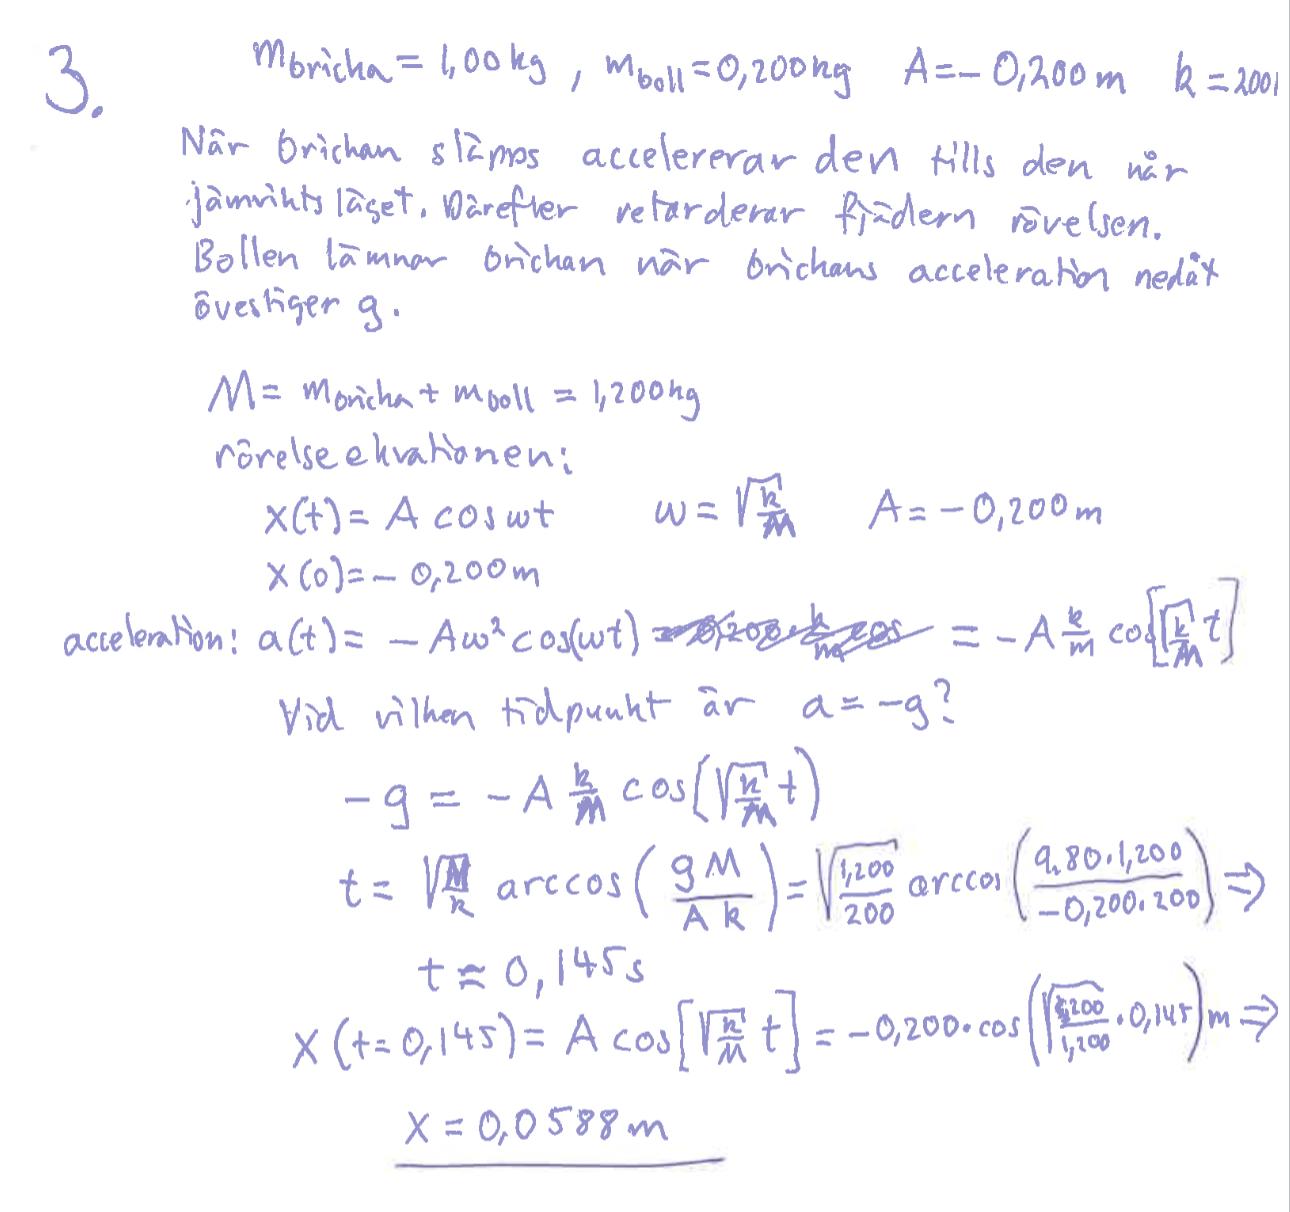 3. m_bricka = 1,00 kg , m_boll = 0,200 kg A = - 0,200 m k = 200
När brickan släpps accelererar den tills den når
jämviktsläget. Därefter retarderar fjädern rörelsen.
Bollen lämnar brickan när brickans acceleration nedåt
överstiger g.
M = m_bricka + m_boll = 1,200 kg
rörelseekvationen:
x(t) = A cos ωt ω = √(k/M) A = - 0,200 m
x(0) = - 0,200 m
acceleration: a(t) = - Aω² cos(ωt) = - A k/m cos[√(k/M) t]
Vid vilken tidpunkt är a = -g?
-g = - A k/M cos(√(k/M) t)
t = √(M/k) arccos(gM/Ak) = √(1,200/200) arccos(9,80·1,200/-0,200·200) ⇒
t ≈ 0,145 s
x(t = 0,145) = A cos[√(k/M) t] = -0,200·cos(√(200/1,200)·0,145) m ⇒
x = 0,0588 m